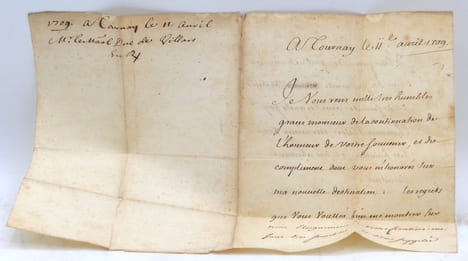 1709. A Tournay le 11 Avril
Mr. le Maal Duc de Villars
A Tournay le 11e avril 1709.
Je Vous rens mille tres humbles
graces monsieur de la continuation de
l'honneur de vostre souvenir, et du
compliment dont vous m'honorés sur
ma nouvelle destination : les regrets
que Vous Voulés bien me montrer sur